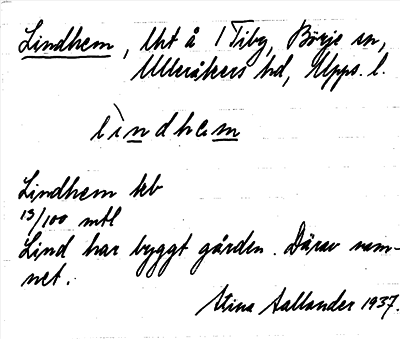 Lindhem, Uht å 1 Tiby, Börje sn,
Ulleråkers hd, Upps. l.
lìndhem
Lindhem lt
13/100 mtl
Lind har byggt gården. Därav nam-
net.
Stina Aallander 1937.